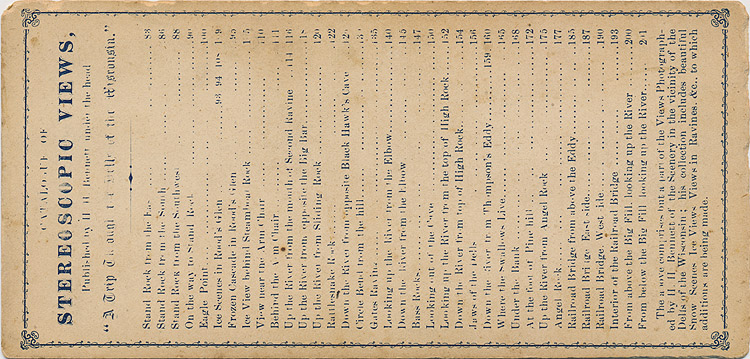 CATALOGUE OF
STEREOSCOPIC VIEWS,
Published by H. H. Bennett under the head
"A Trip Through the Dells of the Wisconsin."
Stand Rock from the East 83
Stand Rock from the South 86
Stand Rock from the Southwest 88
On the way to Stand Rock 90
Eagle Point 100
Ice Scenes in Rood's Glen 93 94
Frozen Cascade in Rood's Glen 95
Ice View behind Steamboat Rock
View near the Arm Chair
Behind the Arm Chair
Up the River from the mouth of Second Ravine 111 116
Up the River from opposite the Big Bar
Up the River from Sliding Rock 120
Rattlesnake Rock
Down the River from opposite Black Hawk's Cave
Circle Bend from the hill
Gates Ravine
Looking up the River from the Elbow 140
Down the River from the Elbow 145
Bass Rocks 147
Looking out of the Cove 150
Looking up the River from the top of High Rock 152
Down the River from top of High Rock 154
Jaws of the Dells 156
Down the River from Thompson's Eddy 159 160
Where the Swallows Live 165
Under the Bank 168
At the foot of Pine hill 172
Up the River from Angel Rock 175
Angel Rock 177
Railroad Bridge from above the Eddy 185
Railroad Bridge East side 187
Railroad Bridge West side 190
Interior of the Railroad Bridge 193
From above the Big Fill looking up the River 200
From below the Big Fill looking up the River 201
The above comprises but a part of the Views Photograph-
ed by H. H. Bennett of the Scenery in the vicinity of the
Dells of the Wisconsin; his collection includes beautiful
Snow Scenes Ice Views Views in Ravines, &c., to which
additions are being made.